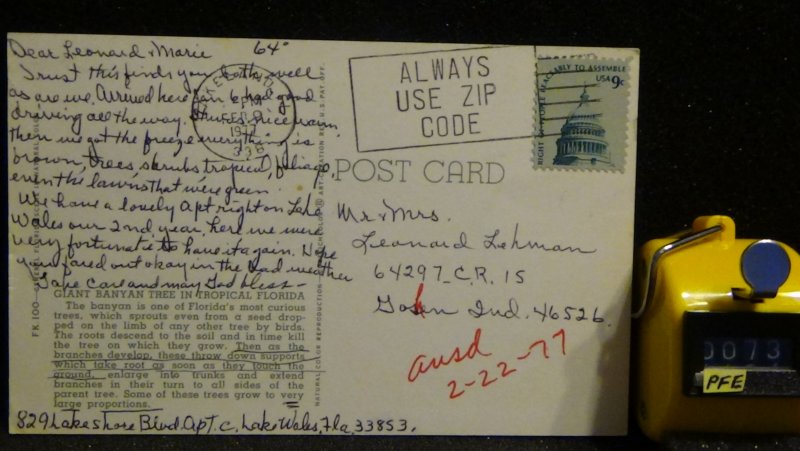 Dear Leonard & Marie 64°
I trust this finds you both well
as are we. Arrived here Jan 6 had good
driving all the way. nice warm,
then we got the freeze everything is
brown, trees, shrubs tropical, foliage,
even the lawns that were green
We have a lovely Apt right on Lake
Wales our 2nd year, here we were
very fortunate to have it again. Hope
you fared out okay in the bad weather
Take care and may God bless—
GIANT BANYAN TREE IN TROPICAL FLORIDA
The banyan is one of Florida's most curious
trees, which sprouts even from a seed drop-
ped on the limb of any other tree by birds.
The roots descend to the soil and in time kill
the tree on which they grow. Then as the
branches develop, these throw down supports
which take root as soon as they touch the
ground, enlarge into trunks and extend
branches in their turn to all sides of the
parent tree. Some of these trees grow to very
large proportions.
829 Lake Shore Blvd. Apt. C, Lake Wales, Fla, 33853.
FK 100
NATURAL COLOR REPRODUCTION
U.S. PAT. OFF.
PM
FEB
1977
338
ALWAYS
USE ZIP
CODE
PEACEABLY TO ASSEMBLE
USA 9c
RIGHT OF PEOPLE
POST CARD
Mr. & Mrs.
Leonard Lehman
64297 C.R. 15
Goshen Ind. 46526
ansd
2-22-77
0073
PFE